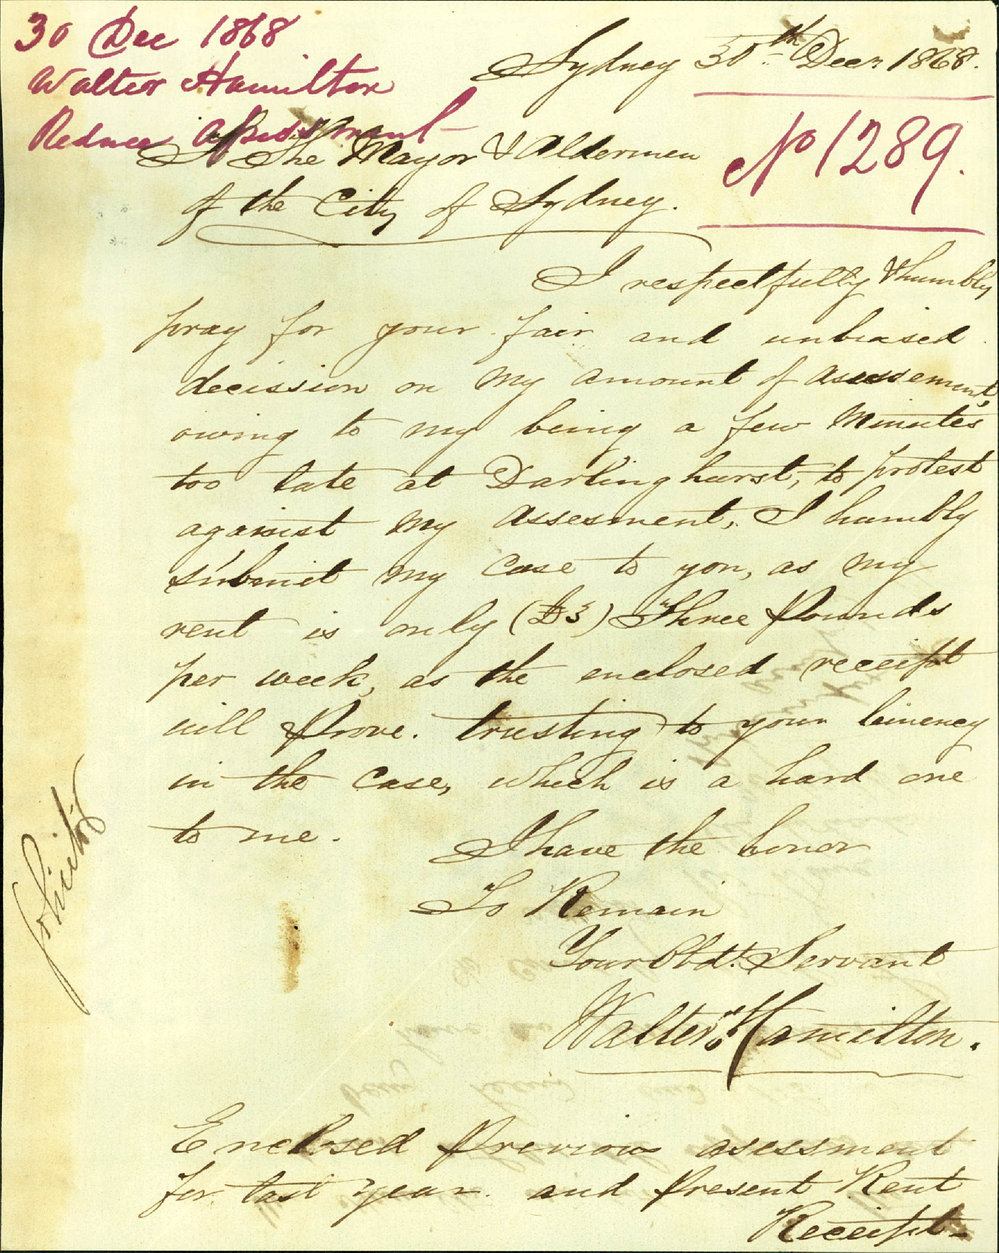 30 Dec 1868
Walter Hamilton
Reduce Assessment
Sydney 30th Decr 1868.
No 1289.
To The Mayor & Aldermen
of the City of Sydney.
I respectfully & humbly
pray for your fair and unbiased
decission on my amount of assessement,
owing to my being a few Minutes
too late at Darlinghurst, to protest
against my Assesment, I humbly
submit my case to you, as my
rent is only (£3) Three Pounds
per week, as the enclosed receipt
will Prove. trusting to your leinency
in the Case, which is a hard one
to me.
I have the honor
To Remain
Your Obdt. Servant
Walter Hamilton.
Enclosed Previous assessment
for last year. and Present Rent
Receipt-